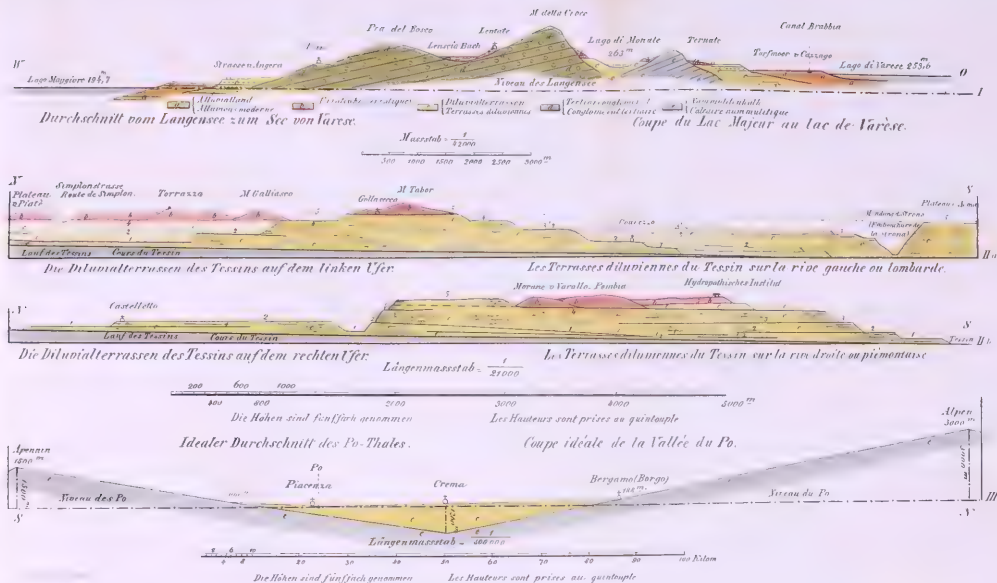 M della Croce
Pra del Bosco
Lentate
Canal Brabbia
Lago di Monate
263 m
Ternate
W
Strasse n. Angera
Lenscia Bach
Torfmoor v. Cazzago
Lago Maggiore 194,7 m
Lago di Varese 253,6 m
O
Niveau des Langensee
I
Alluvialland
Alluvion moderne
Diluvialterrassen
Terrasses diluviennes
Nummulitenkalk
Calcaire nummulitique
Durchschnitt vom Langensee zum See von Varese.
Coupe du Lac Majeur au lac de Varèse.
Massstab = 1/22000
500 1000 1500 2000 2500 3000 m
N
Simplonstrasse
Plateau
Route de Simplon.
Torrazza
M Galliasco
M Tabor
Gollasecca
S
Lauf des Tessins
Cours du Tessin
II a
Die Diluvialterrassen des Tessins auf dem linken Ufer.
Les Terrasses diluviennes du Tessin sur la rive gauche ou lombarde.
Castelletto
Morane v Varallo-Pombia
Hydropathisches Institut
N
S
Lauf des Tessins
Cours du Tessin
Tessin
II b.
Die Diluvialterrassen des Tessins auf dem rechten Ufer.
Les Terrasses diluviennes du Tessin sur la rive droite ou piémontaise
Längenmassstab = 1/21000
200 600 1000
400 800 2100 3000 4000 5000 m
Die Höhen sind fünffach genommen
Les Hauteurs sont prises au quintouple
Idealer Durchschnitt des Po-Thales.
Coupe idéale de la Vallée du Po.
Alpen
3000 m
Apennin
1500 m
Po
Piacenza
Crema
Bergamo (Borgo)
Niveau des Po
Niveau du Po
III
S
N
Längenmassstab =
10 20 30 40 50 60 70 80 90 100 Kilom
Die Höhen sind fünffach genommen
Les Hauteurs sont prises au quintouple